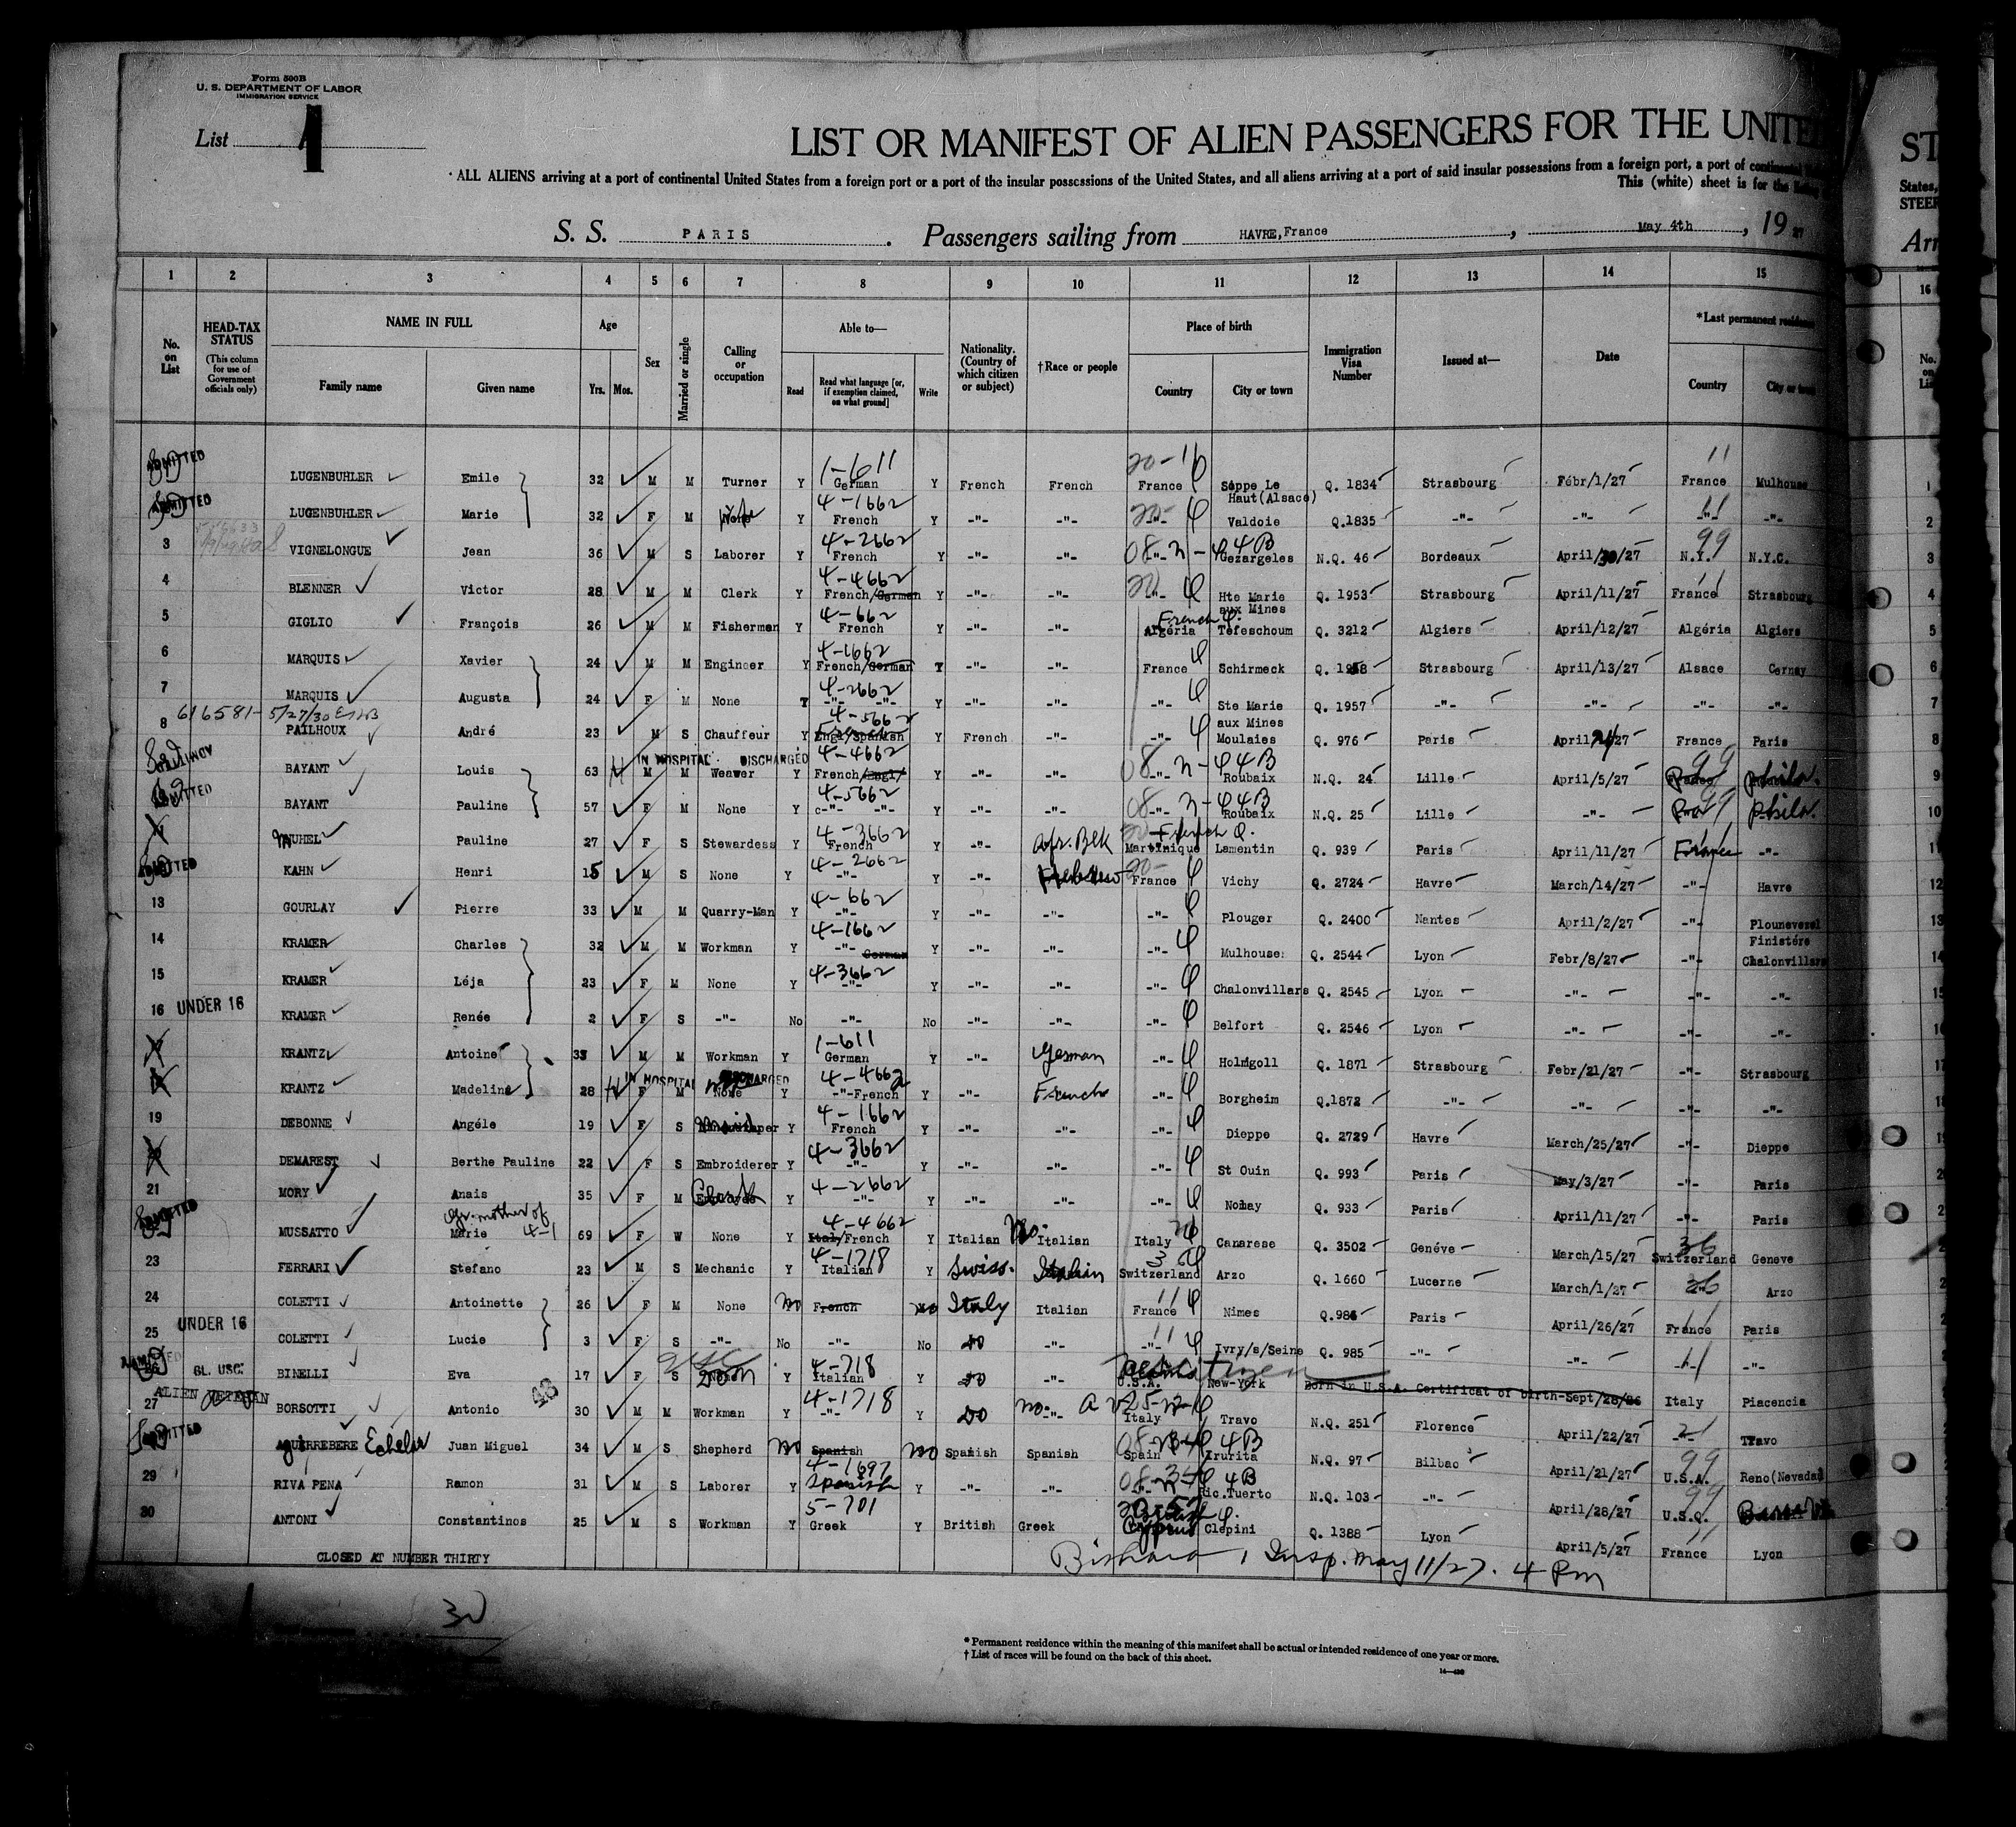 Form 500B
U. S. DEPARTMENT OF LABOR
IMMIGRATION SERVICE
List 1
LIST OR MANIFEST OF ALIEN PASSENGERS FOR THE UNITED
ALL ALIENS arriving at a port of continental United States from a foreign port or a port of the insular possessions of the United States, and all aliens arriving at a port of said insular possessions from a foreign port, a port of continental
This (white) sheet is for the
S. S. PARIS. Passengers sailing from HAVRE,France, May 4th, 19 27
ST
States,
STEER
Arr
1 2 3 4 5 6 7 8 9 10 11 12 13 14 15 16
No. on List
HEAD-TAX STATUS (This column for use of Government officials only)
NAME IN FULL Family name Given name
Age Yrs. Mos.
Sex
Married or single
Calling or occupation
Able to— Read Read what language [or, if exemption claimed, on what ground] Write
Nationality. (Country of which citizen or subject)
†Race or people
Place of birth Country City or town
Immigration Visa Number
Issued at—
Date
*Last permanent residence Country City or town
ADMITTED LUGENBUHLER Emile 32 M M Turner Y 1-611 German Y French French France Seppe Le Haut(Alsace) Q. 1834 Strasbourg Fébr/1/27 France Mulhouse 1
ADMITTED LUGENBUHLER Marie 32 F M Y 4-1662 French Y -"- -"- -"- Valdoie Q.1835 -"- -"- -"- -"- 2
3 VIGNELONGUE Jean 36 M S Laborer Y 4-2662 French Y -"- -"- -"- Gezargeles N.Q. 46 Bordeaux April/30/27 N.Y. N.Y.C. 3
4 BLENNER Victor 28 M M Clerk Y 4-4662 French/German Y -"- -"- -"- Hte Marie aux Mines Q. 1953 Strasbourg April/11/27 France Strasbourg 4
5 GIGLIO François 26 M M Fisherman Y 4-662 French Y -"- -"- French Algéria Tefeschoum Q. 3212 Algiers April/12/27 Algéria Algiers 5
6 MARQUIS Xavier 24 M M Engineer Y 4-1662 French/German Y -"- -"- France Schirmeck Q. 1958 Strasbourg April/13/27 Alsace Cernay 6
7 MARQUIS Augusta 24 F M None Y 4-2662 -"- -"- Y -"- -"- -"- Ste Marie aux Mines Q. 1957 -"- -"- -"- -"- 7
616581-5/27/30
8 PAILHOUX André 23 M S Chauffeur Y 4-5662 Engl/Spanish Y French -"- -"- Moulaies Q. 976 Paris April 27 France Paris 8
IN HOSPITAL DISCHARGED
BAYANT Louis 63 M M Weawer Y 4-4662 French/Engl/ Y -"- -"- -"- Roubaix N.Q. 24 Lille April/5/27 Phila. 9
ADMITTED BAYANT Pauline 57 F M None Y 4-5662 -"- -"- Y -"- -"- -"- Roubaix N.Q. 25 Lille -"- Phila. 10
MUHEL Pauline 27 F S Stewardess Y 4-3662 French Y -"- Afr. Blk French Martinique Lamentin Q. 939 Paris April/11/27 France -"- 11
ADMITTED KAHN Henri 15 M S None Y 4-2662 -"- Y -"- Hebrew France Vichy Q. 2724 Havre March/14/27 -"- Havre 12
13 GOURLAY Pierre 33 M M Quarry-Man Y 4-662 -"- Y -"- -"- -"- Plouger Q. 2400 Nantes April/2/27 -"- Plounevezel Finistére 13
14 KRAMER Charles 32 M M Workman Y 4-1662 -"- German Y -"- -"- -"- Mulhouse Q. 2544 Lyon Febr/8/27 -"- Chalonvillars 14
15 KRAMER Léja 23 F M None Y 4-3662 -"- Y -"- -"- -"- Chalonvillars Q. 2545 Lyon -"- -"- -"- 15
16 UNDER 16 KRAMER Renée 2 F S -"- No -"- No -"- -"- -"- Belfort Q. 2546 Lyon -"- -"- -"- 16
17 KRANTZ Antoine 33 M M Workman Y 1-611 German Y -"- German -"- Holmgoll Q. 1871 Strasbourg Febr/21/27 -"- Strasbourg 17
IN HOSPITAL DISCHARGED
18 KRANTZ Madeline 28 F M None Y 4-4662 -"-French Y -"- French -"- Borgheim Q.1872 -"- -"- -"- -"- 18
19 DEBONNE Angéle 19 F S Maid Y 4-1662 French Y -"- -"- -"- Dieppe Q. 2729 Havre March/25/27 -"- Dieppe 19
DEMAREST Berthe Pauline 22 F S Embroiderer Y 4-3662 -"- Y -"- -"- -"- St Ouin Q. 993 Paris May/3/27 -"- Paris 20
21 MORY Anais 35 F M Y 4-2662 -"- Y -"- -"- -"- Nomay Q. 933 Paris April/11/27 -"- Paris 2
Gr. mother of 4-1
ADMITTED MUSSATTO Marie 69 F W None Y 4-4662 Ital/French Y Italian No. Italian Italy Canarese Q. 3502 Genéve March/15/27 Switzerland Geneve
23 FERRARI Stefano 23 M S Mechanic Y 4-1718 Italian Y Swiss. Italian Switzerland Arzo Q. 1660 Lucerne March/1/27 Arzo
24 COLETTI Antoinette 26 F M None No French No Italy Italian France Nimes Q.986 Paris April/26/27 France Paris
25 UNDER 16 COLETTI Lucie 3 F S -"- No -"- No Do -"- -"- Ivry/s/Seine Q. 985 -"- -"- -"-
26 GL. USC. BINELLI Eva 17 F S Y 4-718 Italian Y Do -"- citizen U.S.A. New-York Born in U.S.A. Certificat of birth-Sept/28/26 Italy Piacencia
ALIEN VETERAN 48
27 BORSOTTI Antonio 30 M M Workman Y 4-1718 -"- Y Do No. -"- Italy Travo N.Q. 251 Florence April/22/27 -"- Travo
ADMITTED AGUIRREBERE Juan Miguel 34 M S Shepherd No Spanish No Spanish Spanish Spain Irurita N.Q. 97 Bilbao April/21/27 U.S.A. Reno(Nevada)
29 RIVA PENA Ramon 31 M S Laborer Y 4-1697 Spanish Y -"- -"- -"- Ric.Tuerto N.Q. 103 -"- April/28/27 U.S.
30 ANTONI Constantinos 25 M S Workman Y 5-701 Greek Y British Greek British Cyprus Clepini Q. 1388 Lyon April/5/27 France Lyon
CLOSED AT NUMBER THIRTY
Insp. May 11/27. 4 Pm
30
* Permanent residence within the meaning of this manifest shall be actual or intended residence of one year or more.
† List of races will be found on the back of this sheet.